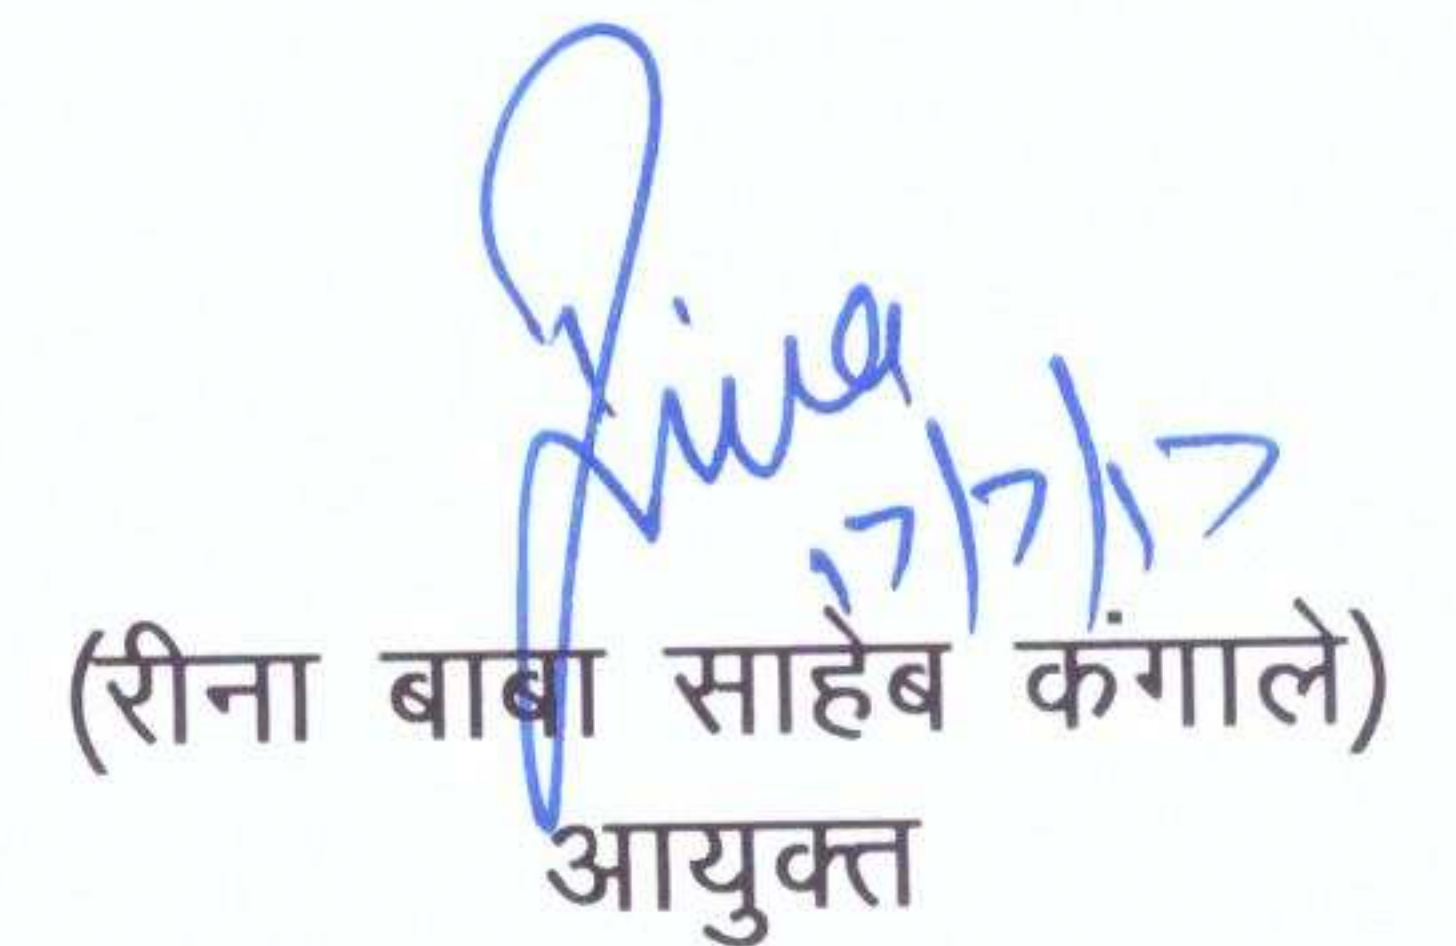 Rina
17/7/17
(रीना बाबा साहेब कंगाले)
आयुक्त